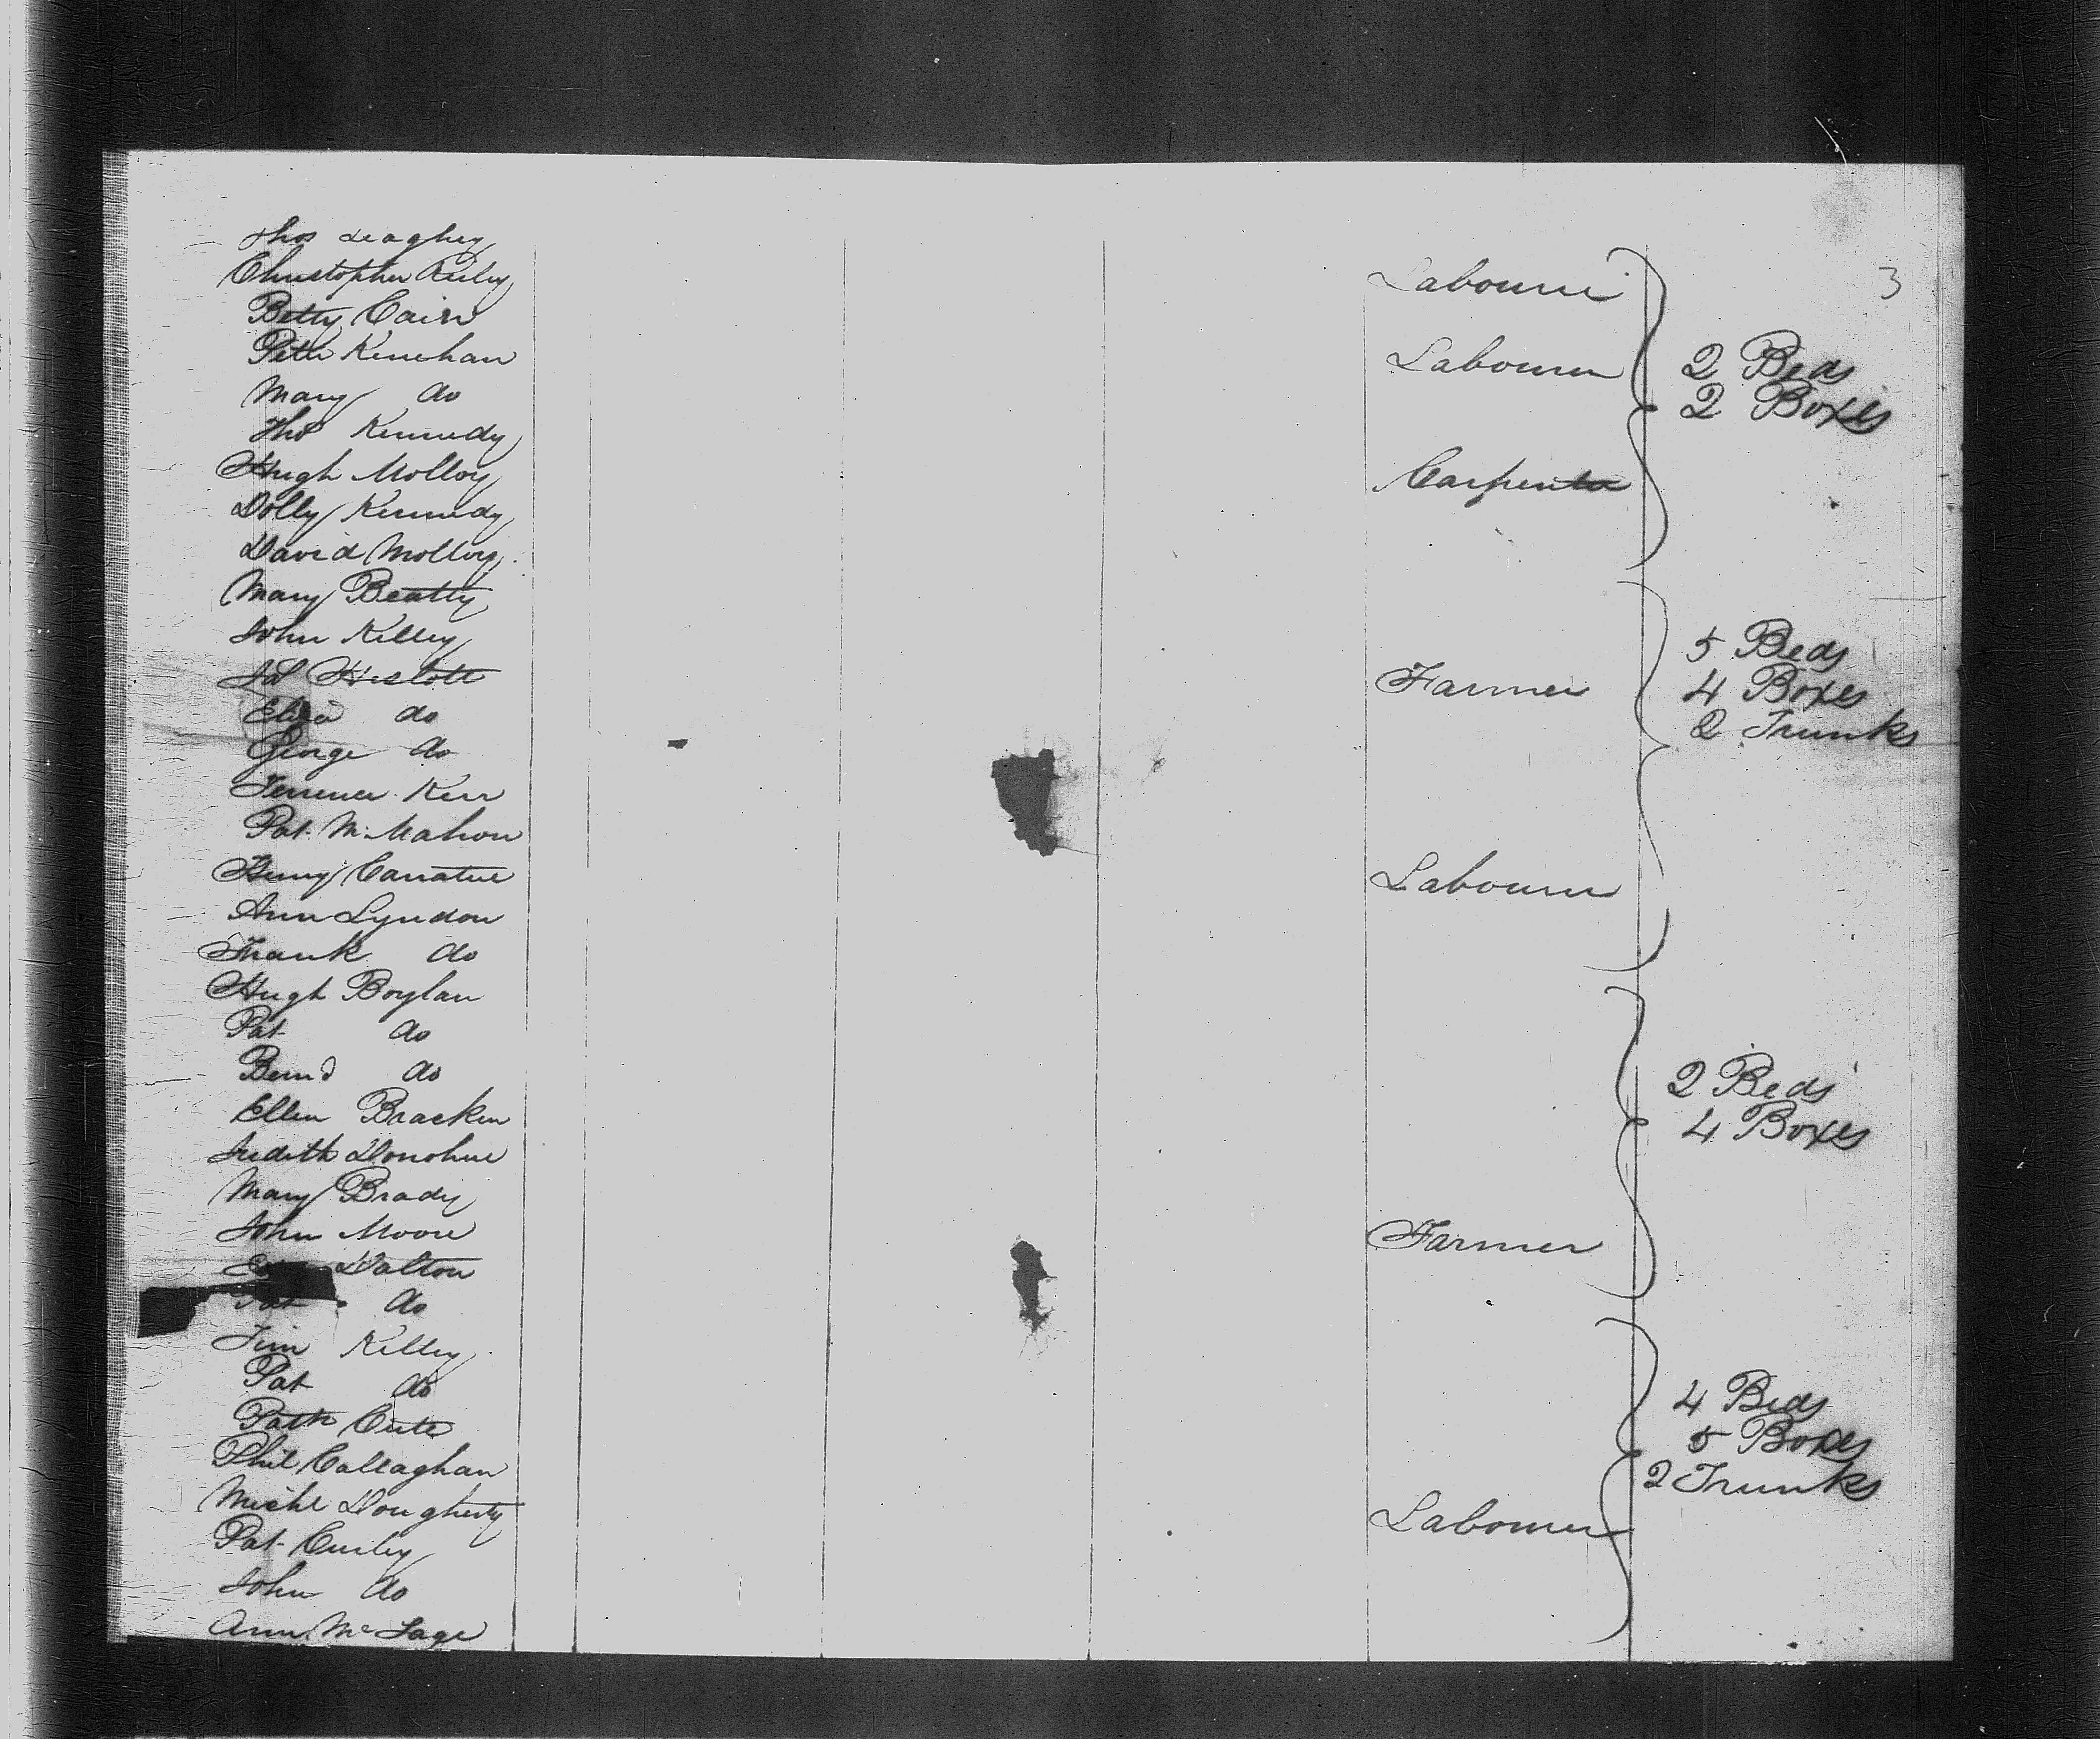 Thos Leaghey
Christopher Reiley
Betty Cairn Labourer 3
Peter Kenehan Labourer 2 Beds
Mary do 2 Boxes
Thos Kennedy
Hugh Molloy Carpenter
Dolly Kennedy
David Molloy
Mary Beatty
John Kelley 5 Beds
Heslott Farmer 4 Boxes
Eliza do 2 Trunks
George do
Terrence Kerr
Pat. McMahon
Henry Labourer
Ann Lyndon
Frank do
Hugh Boylan
Pat do
Bernd do 2 Beds
Ellen Bracken 4 Boxes
Judith Donohue
Mary Brady
John Moore Farmer
Dalton
Pat do
Tim Kelley
Pat do 4 Beds
Patk Cute 5 Boxes
Phil Callaghan 2 Trunks
Michl Dougherty Labourer
Pat Curley
John do
Ann Mc